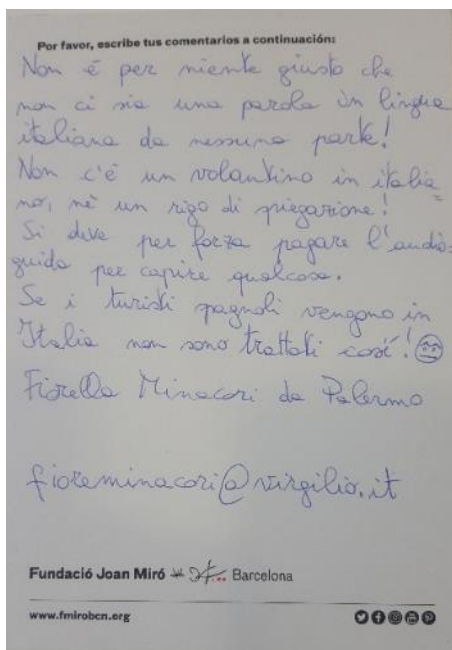 Por favor, escribe tus comentarios a continuación:
Non è per niente giusto che
non ci sia una parola in lingua
italiana da nessuna parte!
Non c'è un volantino in italia=
no, nè un rigo di spiegazione!
Si deve per forza pagare l'audio=
guida per capire qualcosa.
Se i turisti spagnoli vengono in
Italia non sono trattati così!
Fiorella Minacori da Palermo
fioreminacori@virgilio.it
Fundació Joan Miró Barcelona
www.fmirobcn.org